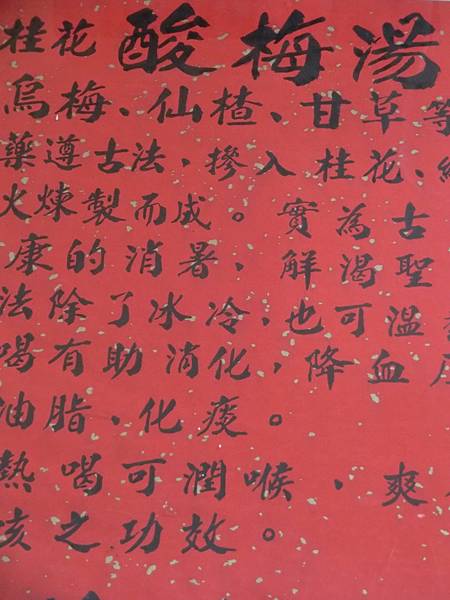 桂花 酸梅湯
烏梅、仙楂、甘草等
藥遵古法,摻入桂花、
火煉製而成。實為古
康的消暑,解渴聖
法除了冰冷,也可溫
喝有助消化,降血
油脂、化痰。
熱喝可潤喉,爽
咳之功效。